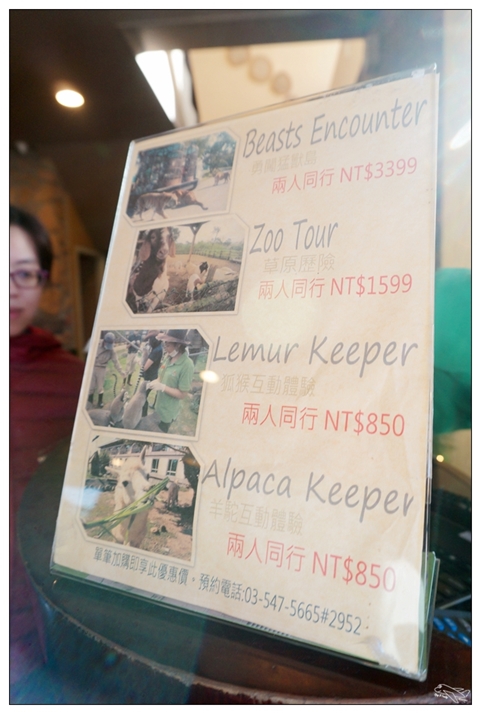 Beasts Encounter
兩人同行 NT$3399
Zoo Tour
草原歷險
兩人同行 NT$1599
Lemur Keeper
狐猴互動體驗
兩人同行 NT$850
Alpaca Keeper
羊駝互動體驗
兩人同行 NT$850
單筆加購即享此優惠價。預約電話:03-547-5665#2952